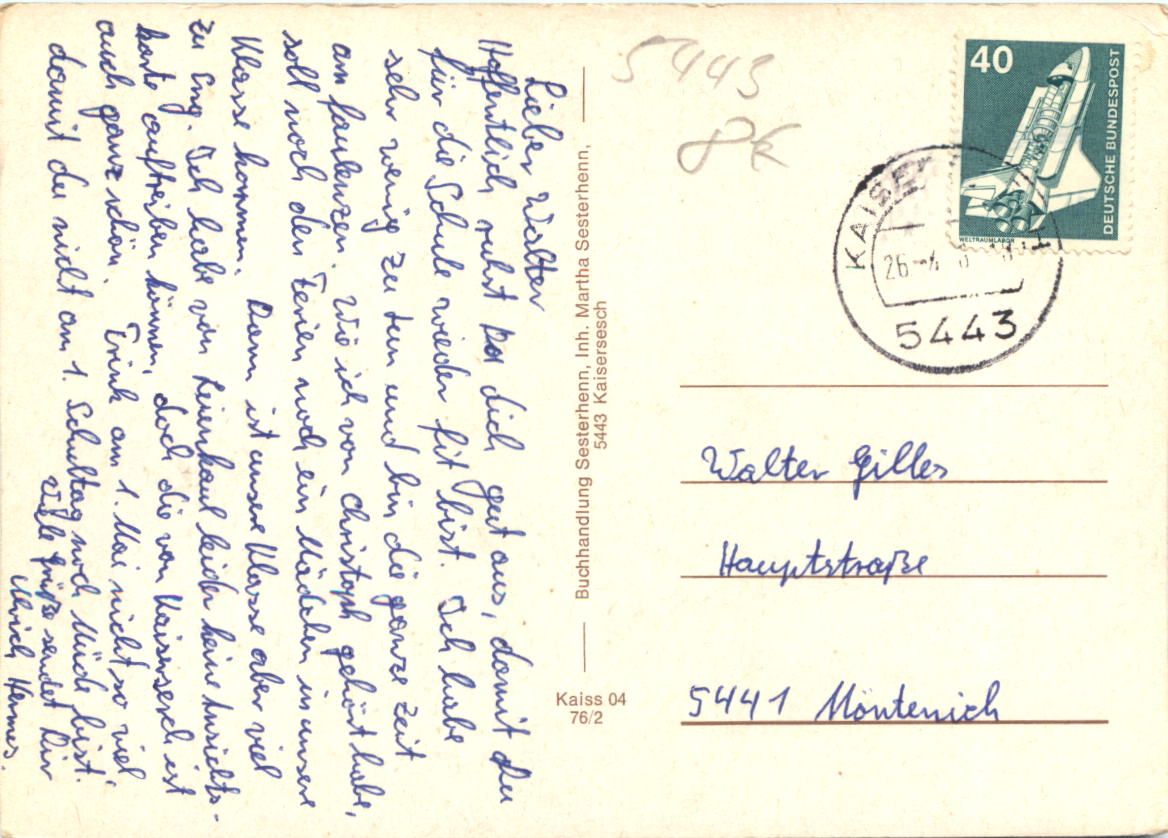 Lieber Walter
Hoffentlich ruhst Du dich gut aus, damit Du
für die Schule wieder fit bist. Ich habe
sehr wenig zu tun und bin die ganze Zeit
am faulenzen. Wie ich von Christoph gehört habe,
soll nach den Ferien noch ein Mädchen in unsere
Klasse kommen. Dann ist unsere Klasse aber viel
zu eng. Ich habe von Leienkaul leider keine Ansichts-
karte auftreiben können, doch die von Kaisersesch ist
auch ganz schön. Trink am 1. Mai nicht so viel
damit du nicht am 1. Schultag noch Müde bist!
Viele Grüße sendet Dir
Ulrich Hammes.
Buchhandlung Sesterhenn, Inh. Martha Sesterhenn,
5443 Kaisersesch
Kaiss 04
76/2
5443
8€
40
DEUTSCHE BUNDESPOST
WELTRAUMLABOR
KAISE
26
5443
Walter Gilles
Hauptstraße
5441 Möntenich